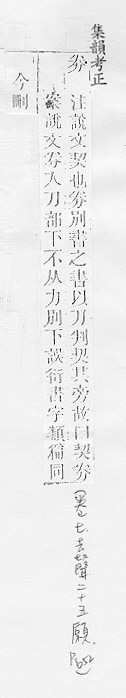 集韻考正
券
注說文契也券別書之書以刀判契其旁故曰契券
案說文券入刀部下不从力別下誤衍書字類篇同
今刪
(卷七去聲二十五願